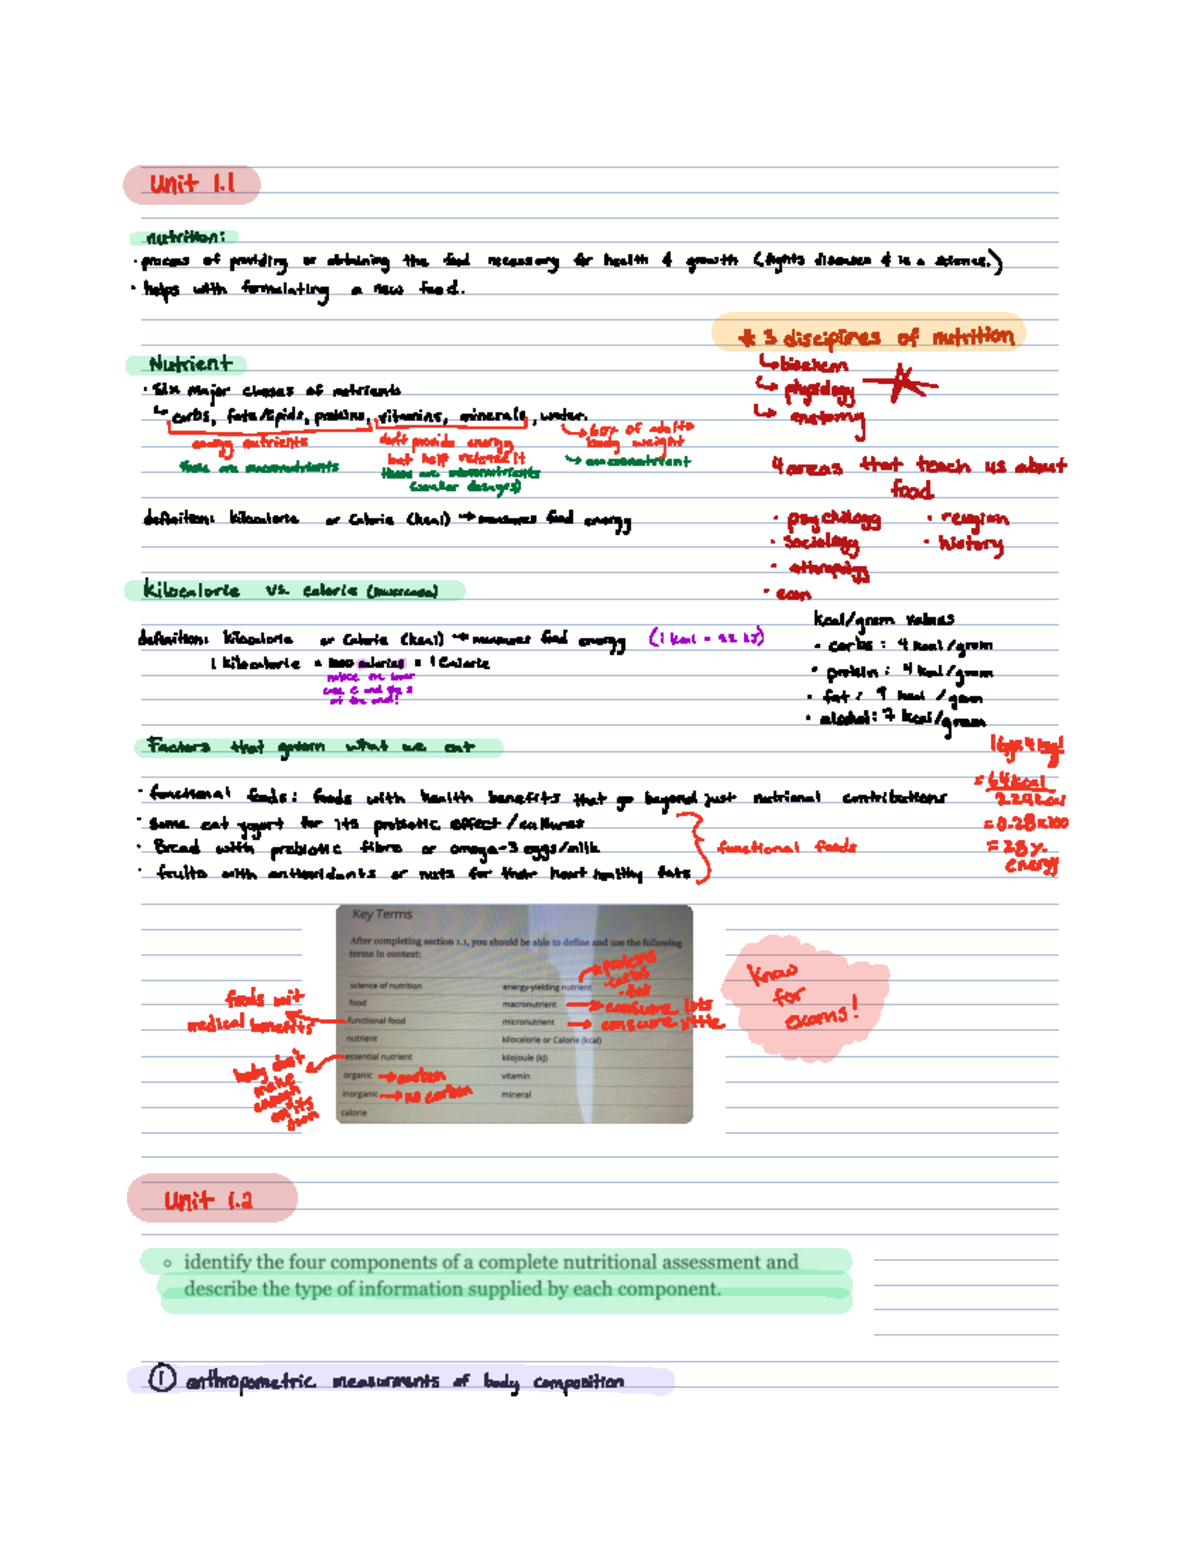 Unit 1.1
nutrition:
· process of providing or obtaining the food necessary for health & growth (fights diseases & is a science.)
· helps with formulating a new food.
* 3 disciplines of nutrition
↳ biochem
↳ physiology
↳ anatomy
Nutrient
· Six major classes of nutrients
↳ carbs, fats/lipids, proteins, vitamins, minerals, water.
energy nutrients
these are macronutrients
don't provide energy,
but help release it
these are micronutrients
(smaller dosages)
↳ 60% of adults
body weight
↳ macronutrient
4 areas that teach us about
food
· psychology
· sociology
· econ
· religion
· history
definition: kilocalorie or Calorie (kcal) → measures food energy
kilocalorie vs. calorie (lowercase)
definition: kilocalorie or Calorie (kcal) → measures food energy (1 kcal = 4.2 kJ)
1 kilocalorie = 1000 calories = 1 Calorie
notice the lower
case c and the s
at the end!
kcal/gram values
· carbs: 4 kcal/gram
· protein: 4 kcal/gram
· fat: 9 kcal/gram
· alcohol: 7 kcal/gram
Factors that govern what we eat
· functional foods: foods with health benefits that go beyond just nutrional contributions
· Some eat yogurt for its probiotic effect/cultures
· Bread with prebiotic fibre or omega-3 eggs/milk
· fruits with antioxidants or nuts for their heart healthy fats
functional foods
= 64 kcal
= 0.28 x 100
= 28%
energy
Key Terms
After completing section 1.1, you should be able to define and use the following
terms in context:
science of nutrition
food
functional food
nutrient
essential nutrient
organic → carbon
inorganic → no carbon
calorie
energy-yielding nutrient
macronutrient → consume lots
micronutrient → consume little
kilocalorie or Calorie (kcal)
kilojoule (kJ)
vitamin
mineral
· proteins
· carbs
· fat
foods wit
medical benefits
body don't
make
enough
on its
own
Know
for
exams!
Unit 1.2
○ identify the four components of a complete nutritional assessment and
describe the type of information supplied by each component.
① anthropometric measurments of body composition